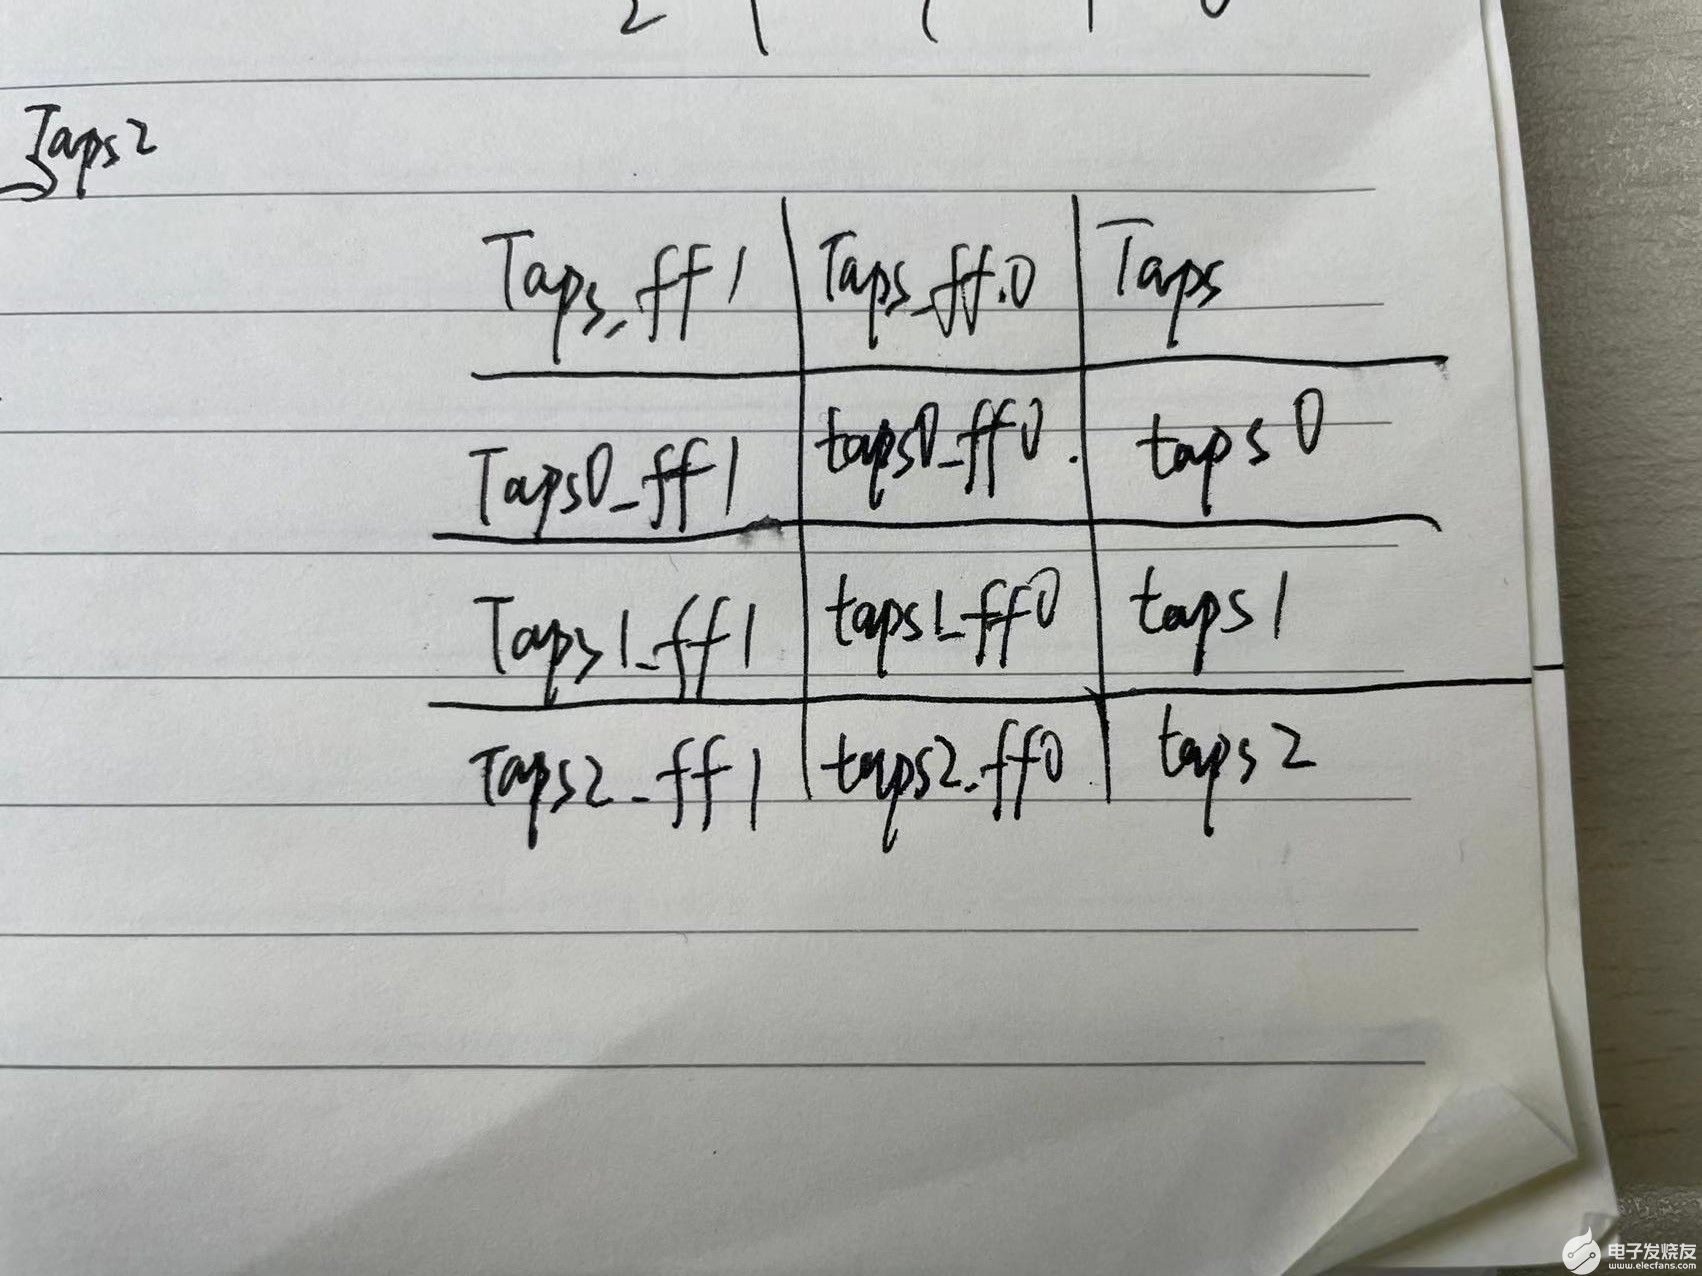 Taps2
Taps_ff1 Taps_ff0 Taps
Taps0_ff1 taps0_ff0 taps0
Taps1_ff1 taps1_ff0 taps1
Taps2_ff1 taps2_ff0 taps2
电子发烧友
www.elecfans.com